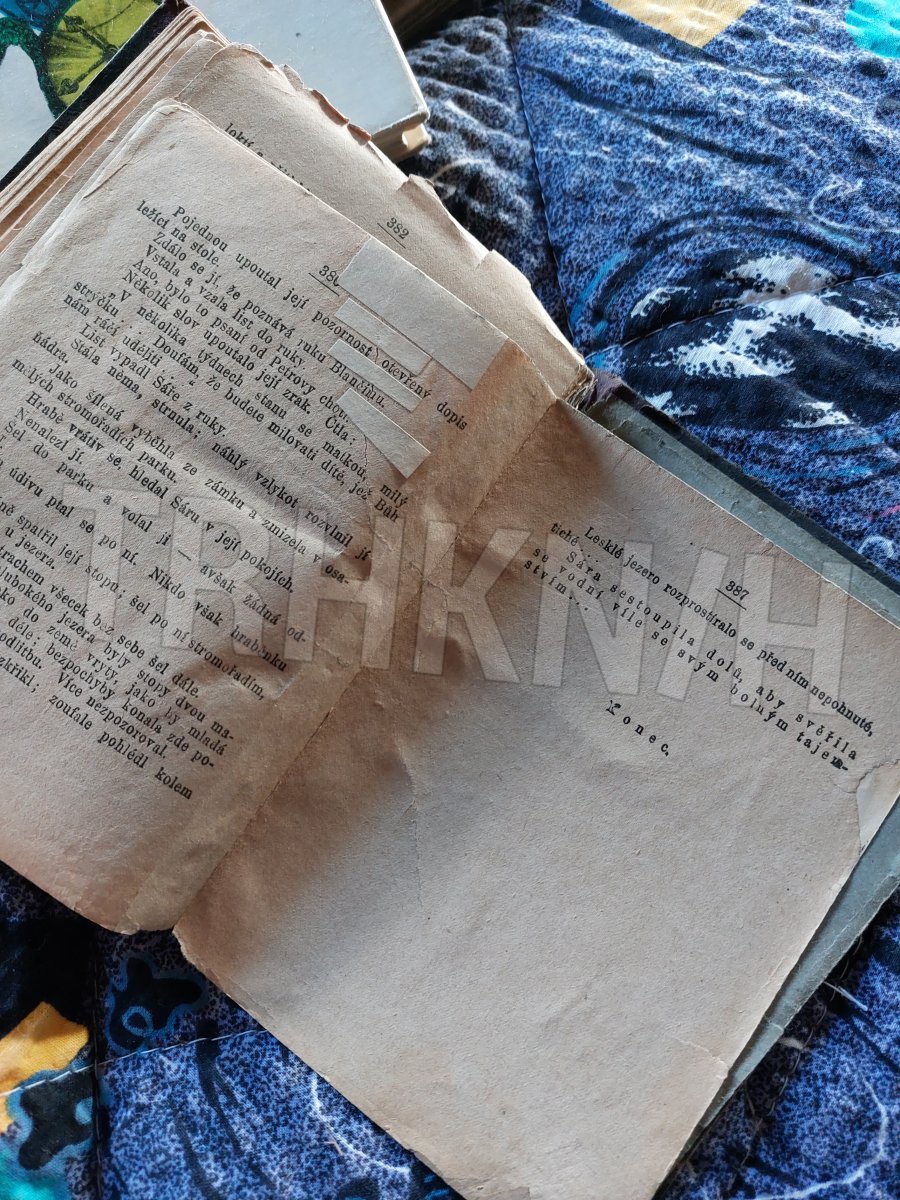 382
Pojednou upoutal její pozornost otevřený dopis
ležící na stole.
Zdálo se jí, že poznává ruku Blančinu.
Vstala a vzala list do ruky
Ano, bylo to psaní od Petrovy choti.
Několik slov upoutalo její zrak. Četla:
V několika týdnech stanu se matkou, milý
stryčku . . . Doufám, že budete milovati dítě, jež Bůh
nám ráčí uděliti . . "
List vypadl Sáře z ruky.
Stála něma, strnula; náhlý vzlykot rozvlnil jí
ňadra.
Jako šílená vyběhla ze zámku a zmizela v osa-
mělých stromořadích parku.
Hrabě vrátiv se, hledal Sáru v její pokojích.
Nenalezl jí.
Šel do parku a volal jí — avšak žádná od-
údivu ptal se po ní. Nikdo však hraběnku
spatřil její stopu; šel po ní stromořadím,
u jezera.
všecek bez sebe šel dále.
jezera byly stopy dvou ma-
do země vryty, jako by mladá
déle; bezpochyby konala zde po-
Více nezpozoroval.
zoufale pohlédl kolem
387
Lesklé jezero rozprostíralo se před ním nepohnuté,
tiché . . .
Sára sestoupila dolů, aby svěřila
se vodní víle se svým bolným tajem-
stvím...
Konec.
TRHKNIH